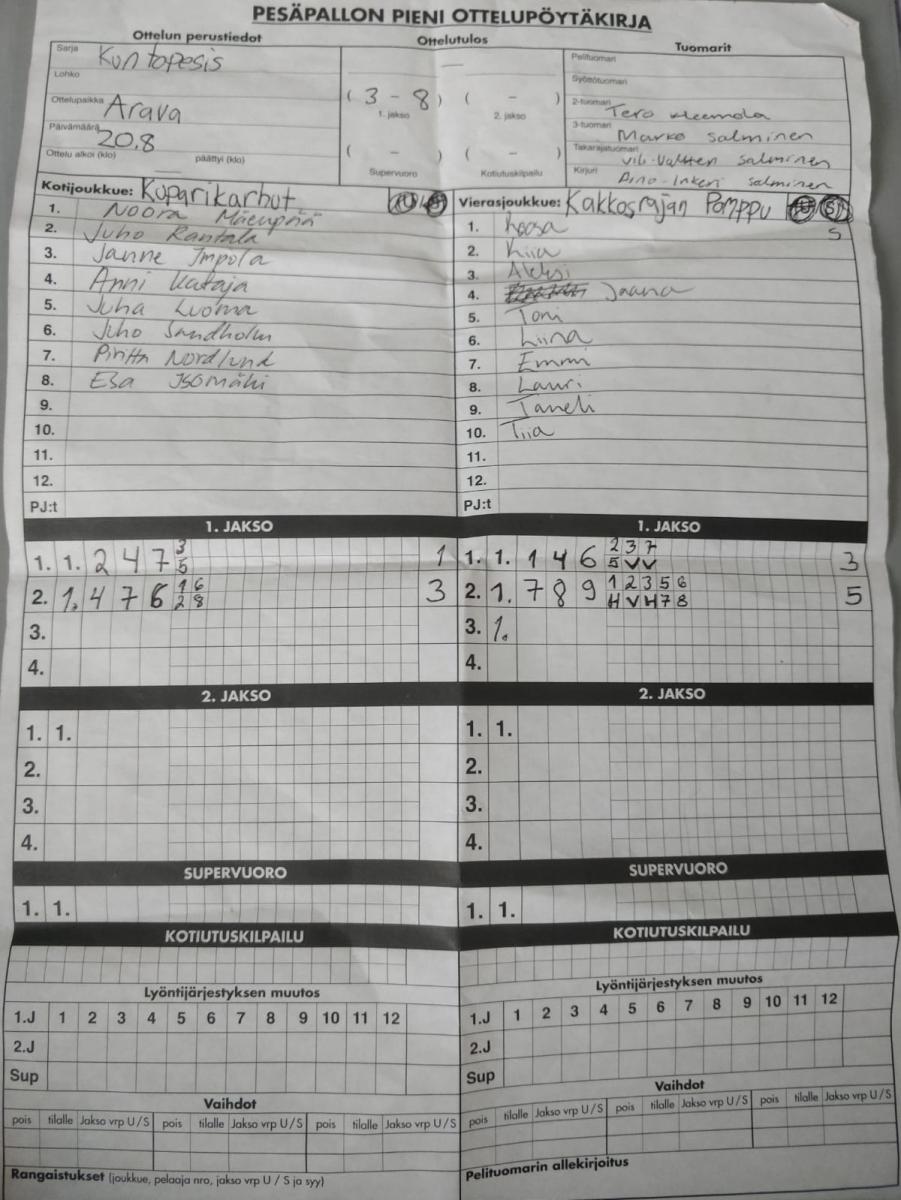 PESÄPALLON PIENI OTTELUPÖYTÄKIRJA
Ottelun perustiedot
Sarja Kuntopesis
Lohko
Ottelupaikka Arava
Päivämäärä 20.8
Ottelu alkoi (klo) päättyi (klo)
Ottelutulos
—
( 3 - 8 ) ( - )
1. jakso 2. jakso
( - ) ( - )
Supervuoro Kotiutuskilpailu
Tuomarit
Pelituomari
Syöttötuomari
2-tuomari Tero
3-tuomari Marko Salminen
Takarajatuomari Salminen
Kirjuri Aino-Inkeri Salminen
Kotijoukkue: Kuparikarhut
1. Noora Mäenpää
2. Juho Rantala
3. Janne Impola
4. Anni Kataja
5. Juha Luoma
6. Juho Sandholm
7. Nordlund
8. Esa Isomäki
9.
10.
11.
12.
PJ:t
Vierasjoukkue: Kakkosrajan Pomppu
S
1. Roosa
2. Kiia
3. Aleksi
4. Jaana
5. Toni
6. Liina
7. Emmi
8. Lauri
9. Taneli
10. Tiia
11.
12.
PJ:t
1. JAKSO
1. 1. 2 4 7 3 1
5
2. 1. 4 7 6 1 6 3
2 8
3.
4.
1. JAKSO
1. 1. 1 4 6 2 3 7 3
5 V V
2. 1. 7 8 9 1 2 3 5 6 5
H V H 7 8
3. 1.
4.
2. JAKSO
1. 1.
2.
3.
4.
2. JAKSO
1. 1.
2.
3.
4.
SUPERVUORO
1. 1.
SUPERVUORO
1. 1.
KOTIUTUSKILPAILU
KOTIUTUSKILPAILU
Lyöntijärjestyksen muutos
1.J 1 2 3 4 5 6 7 8 9 10 11 12
2.J
Sup
Lyöntijärjestyksen muutos
1.J 1 2 3 4 5 6 7 8 9 10 11 12
2.J
Sup
Vaihdot
pois tilalle Jakso vrp U / S pois tilalle Jakso vrp U / S pois tilalle Jakso vrp U / S
Vaihdot
pois tilalle Jakso vrp U / S pois tilalle Jakso vrp U / S pois tilalle Jakso vrp U / S
Rangaistukset (joukkue, pelaaja nro, jakso vrp U / S ja syy)
Pelituomarin allekirjoitus